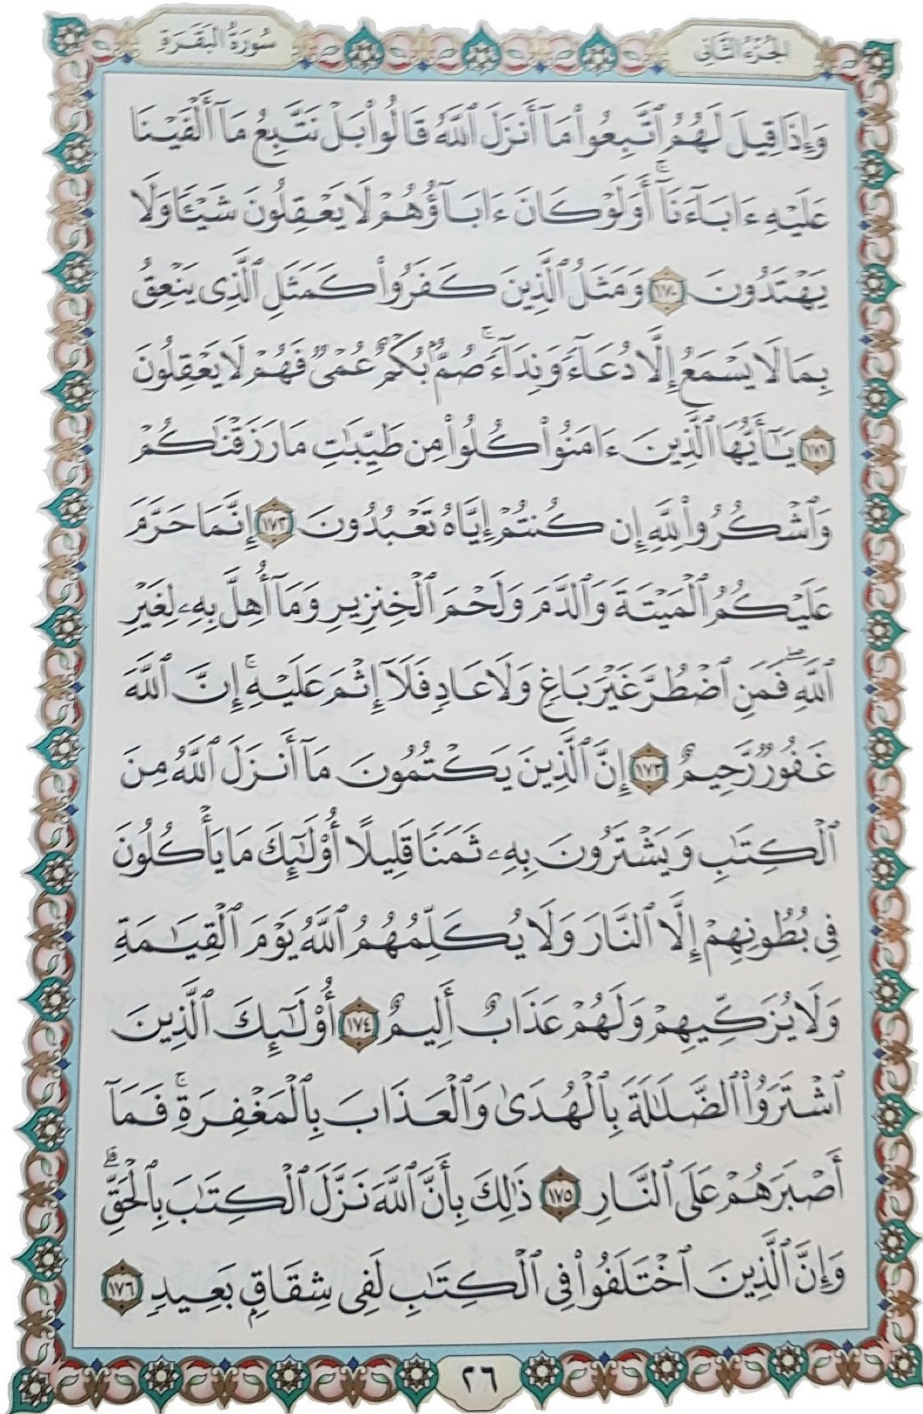 سُورَةُ البَقَرَةِ
الجُزْءُ الثَّانِي
وَإِذَا قِيلَ لَهُمُ ٱتَّبِعُوا۟ مَآ أَنزَلَ ٱللَّهُ قَالُوا۟ بَلْ نَتَّبِعُ مَآ أَلْفَيْنَا
عَلَيْهِ ءَابَآءَنَآ ۚ أَوَلَوْ كَانَ ءَابَآؤُهُمْ لَا يَعْقِلُونَ شَيْـًٔا وَلَا
يَهْتَدُونَ ١٧٠ وَمَثَلُ ٱلَّذِينَ كَفَرُوا۟ كَمَثَلِ ٱلَّذِى يَنْعِقُ
بِمَا لَا يَسْمَعُ إِلَّا دُعَآءً وَنِدَآءً ۚ صُمٌّۢ بُكْمٌ عُمْىٌ فَهُمْ لَا يَعْقِلُونَ
١٧١ يَـٰٓأَيُّهَا ٱلَّذِينَ ءَامَنُوا۟ كُلُوا۟ مِن طَيِّبَـٰتِ مَا رَزَقْنَـٰكُمْ
وَٱشْكُرُوا۟ لِلَّهِ إِن كُنتُمْ إِيَّاهُ تَعْبُدُونَ ١٧٢ إِنَّمَا حَرَّمَ
عَلَيْكُمُ ٱلْمَيْتَةَ وَٱلدَّمَ وَلَحْمَ ٱلْخِنزِيرِ وَمَآ أُهِلَّ بِهِۦ لِغَيْرِ
ٱللَّهِ ۖ فَمَنِ ٱضْطُرَّ غَيْرَ بَاغٍ وَلَا عَادٍ فَلَآ إِثْمَ عَلَيْهِ ۚ إِنَّ ٱللَّهَ
غَفُورٌ رَّحِيمٌ ١٧٣ إِنَّ ٱلَّذِينَ يَكْتُمُونَ مَآ أَنزَلَ ٱللَّهُ مِنَ
ٱلْكِتَـٰبِ وَيَشْتَرُونَ بِهِۦ ثَمَنًا قَلِيلًا أُو۟لَـٰٓئِكَ مَا يَأْكُلُونَ
فِى بُطُونِهِمْ إِلَّا ٱلنَّارَ وَلَا يُكَلِّمُهُمُ ٱللَّهُ يَوْمَ ٱلْقِيَـٰمَةِ
وَلَا يُزَكِّيهِمْ وَلَهُمْ عَذَابٌ أَلِيمٌ ١٧٤ أُو۟لَـٰٓئِكَ ٱلَّذِينَ
ٱشْتَرَوُا۟ ٱلضَّلَـٰلَةَ بِٱلْهُدَىٰ وَٱلْعَذَابَ بِٱلْمَغْفِرَةِ ۚ فَمَآ
أَصْبَرَهُمْ عَلَى ٱلنَّارِ ١٧٥ ذَٰلِكَ بِأَنَّ ٱللَّهَ نَزَّلَ ٱلْكِتَـٰبَ بِٱلْحَقِّ ۗ
وَإِنَّ ٱلَّذِينَ ٱخْتَلَفُوا۟ فِى ٱلْكِتَـٰبِ لَفِى شِقَاقٍۭ بَعِيدٍ ١٧٦
٢٦